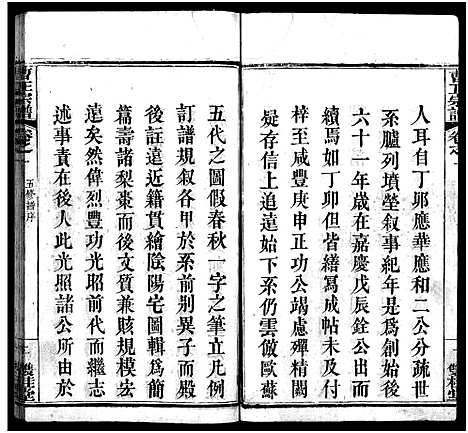 人耳自丁卯應華應和二公分疏世
系臚列墳塋叙事紀年是爲創始後
六十一年歲在嘉慶戊辰銓公出而
續焉如丁卯但皆繕寫成帖未付梨
梓至咸豐庚申正功公竭慮殫精
悉心世守上自追遠始下系仍雲倣歐蘇
五代之圖假春秋一字之筆立凡例
訂譜規叙各甲於系前别異子於繼
後註遠近籍貫繪陰陽宅圖輯爲簡
篇壽諸梨棗而後文質兼賅規模宏
遠矣然烈豐功光昭前代而繼志
述事責在後人此光照諸公所由於
曹氏宗譜
卷之一
五修譜序
雙桂堂